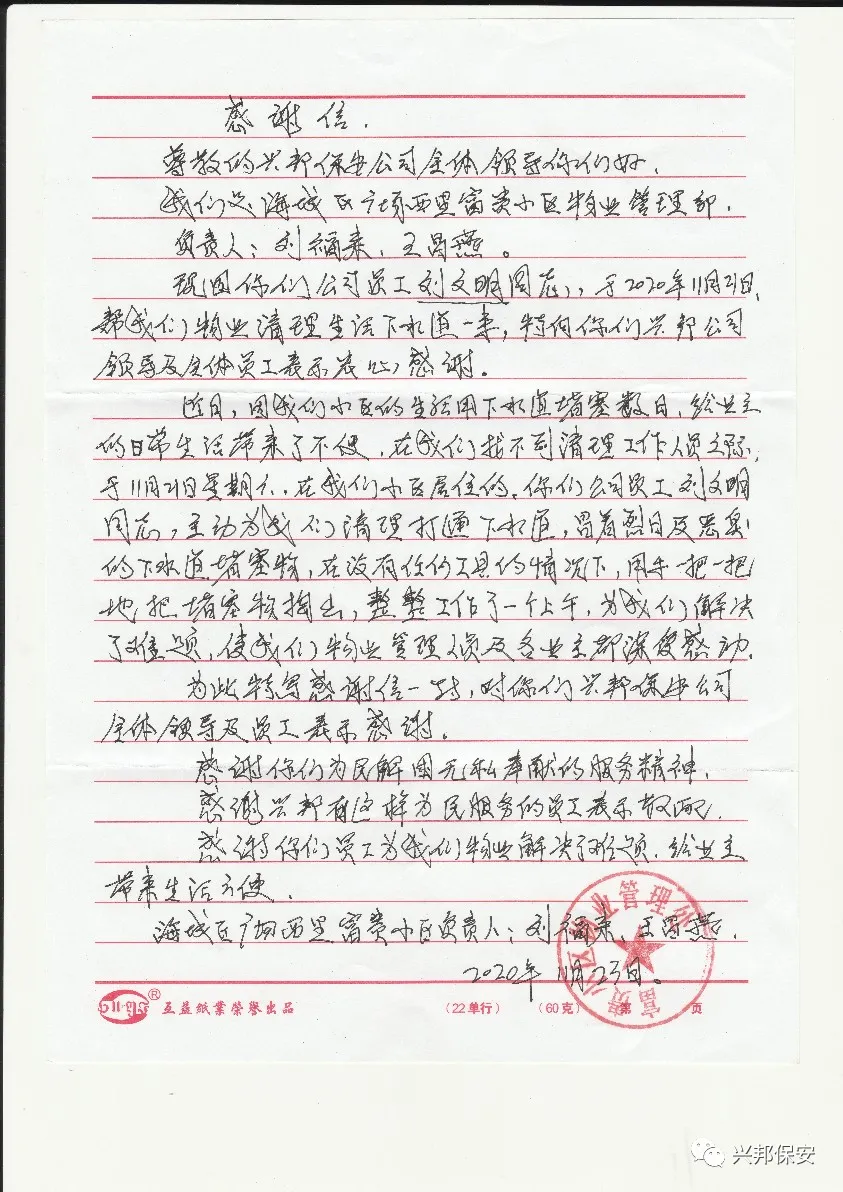 感谢信.
尊敬的兴邦保安公司全体领导你们好.
我们是海城区广场西里富贵小区物业管理部.
负责人：刘福来、王昌燕。
现因你们公司员工刘文明同志，于2020年11月21日,
帮我们物业清理生活下水道一事，特向你们兴邦公司
领导及全体员工表示衷心感谢。
近日，因我们小区的生活用下水道堵塞数日，给业主
的日常生活带来了不便，在我们找不到清理工作人员之际,
于11月21日星期六，在我们小区居住的，你们公司员工刘文明
同志，主动为我们清理打通下水道，冒着烈日及恶臭
的下水道堵塞物，在没有任何工具的情况下，用手一把一把
地把堵塞物掏出，整整工作了一个上午，为我们解决
了难题，使我们物业管理人员及各业主都深受感动.
为此特写感谢信一封，对你们兴邦保安公司
全体领导及员工表示感谢.
感谢你们为民解困无私奉献的服务精神.
感谢兴邦有这样为民服务的员工表示敬配.
感谢你们员工为我们物业解决了难题，给业主
带来生活方便.
海城区广场西里富贵小区负责人：刘福来、王昌燕.
2020年11月23日。
富贵小区物业管理
互益纸業榮譽出品 （22单行） （60克） 第 页
兴邦保安